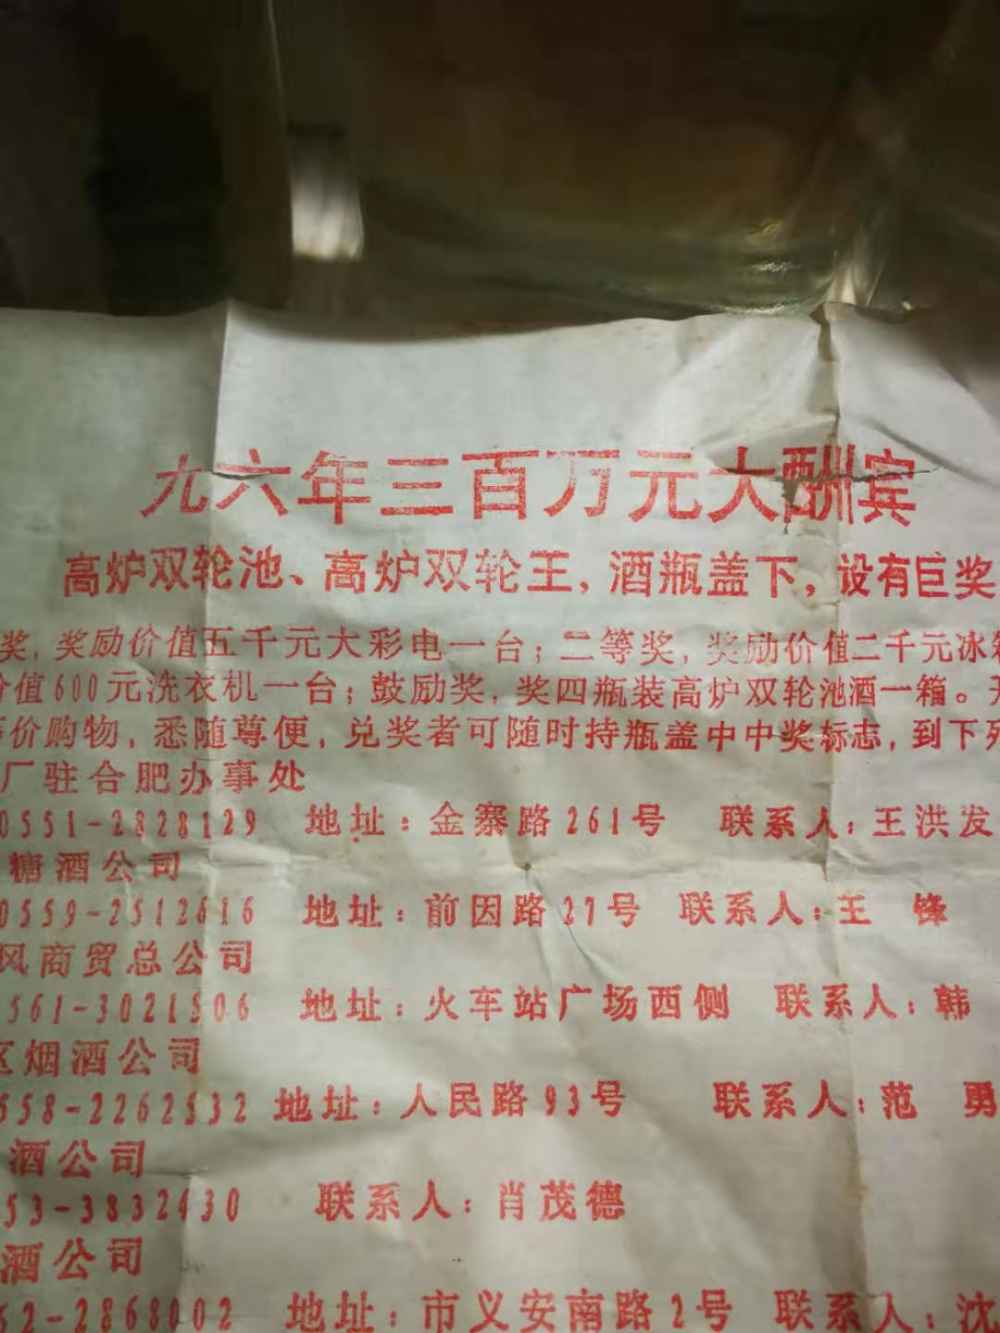 九六年三百万元大酬宾
高炉双轮池、高炉双轮王，酒瓶盖下，设有巨奖
奖，奖励价值五千元大彩电一台；二等奖，奖励价值二千元冰箱
价值600元洗衣机一台；鼓励奖，奖四瓶装高炉双轮池酒一箱。
价购物，悉随尊便，兑奖者可随时持瓶盖中中奖标志，到下列
厂驻合肥办事处
0551-2828129 地址：金寨路261号 联系人：王洪发
糖酒公司
0559-2512616 地址：前因路27号 联系人：王 锋
风商贸总公司
561-3021506 地址：火车站广场西侧 联系人：韩
区烟酒公司
558-2262532 地址：人民路93号 联系人：范 勇
酒公司
53-3832430 联系人：肖茂德
酒公司
62-2868002 地址：市义安南路2号 联系人：沈